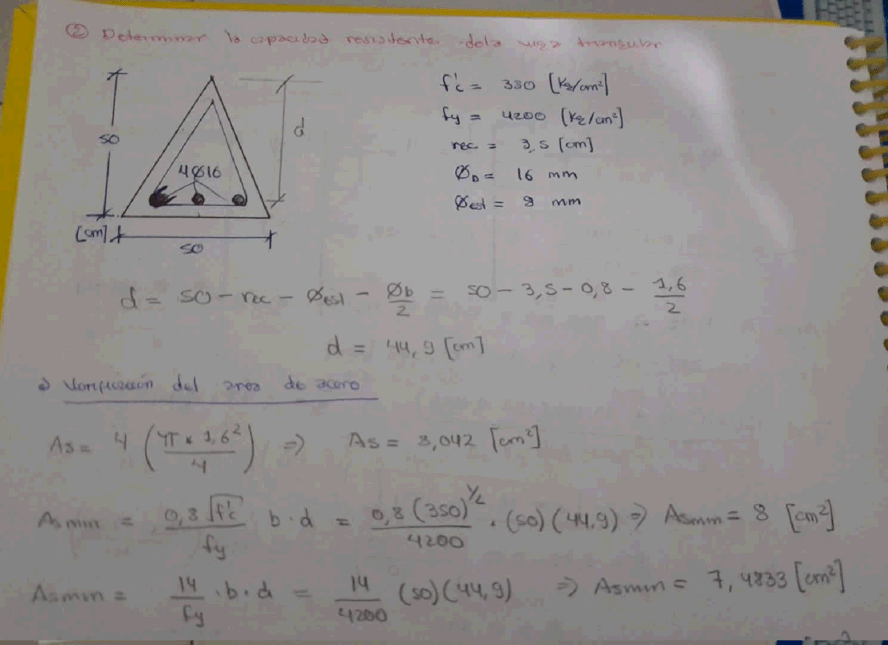 ② Determinar la capacidad resistente de la viga triangular
f'c = 350 [Kg/cm²]
fy = 4200 [Kg/cm²]
rec = 3,5 [cm]
Øb = 16 mm
Øest = 8 mm
50
d
4Ø16
[cm]
50
d = 50 - rec - Øest - Øb/2 = 50 - 3,5 - 0,8 - 1,6/2
d = 44,9 [cm]
a) Verificación del area de acero
As = 4 (π * 1,6²/4) => As = 8,042 [cm²]
Asmin = 0,8√f'c/fy b·d = 0,8(350)^1/2/4200 · (50)(44,9) => Asmin = 8 [cm²]
Asmin = 14/fy · b · d = 14/4200 (50)(44,9) => Asmin = 7,4833 [cm²]